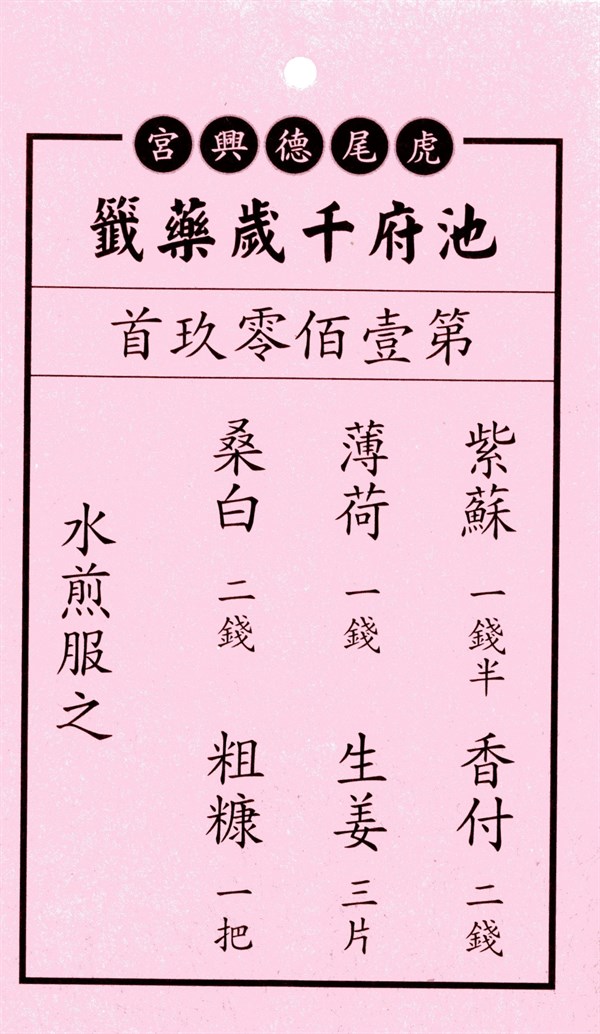 虎尾德興宮
池府千歲藥籤
第壹佰零玖首
紫蘇 一錢半 香付 二錢
薄荷 一錢 生姜 三片
桑白 二錢 粗糠 一把
水煎服之